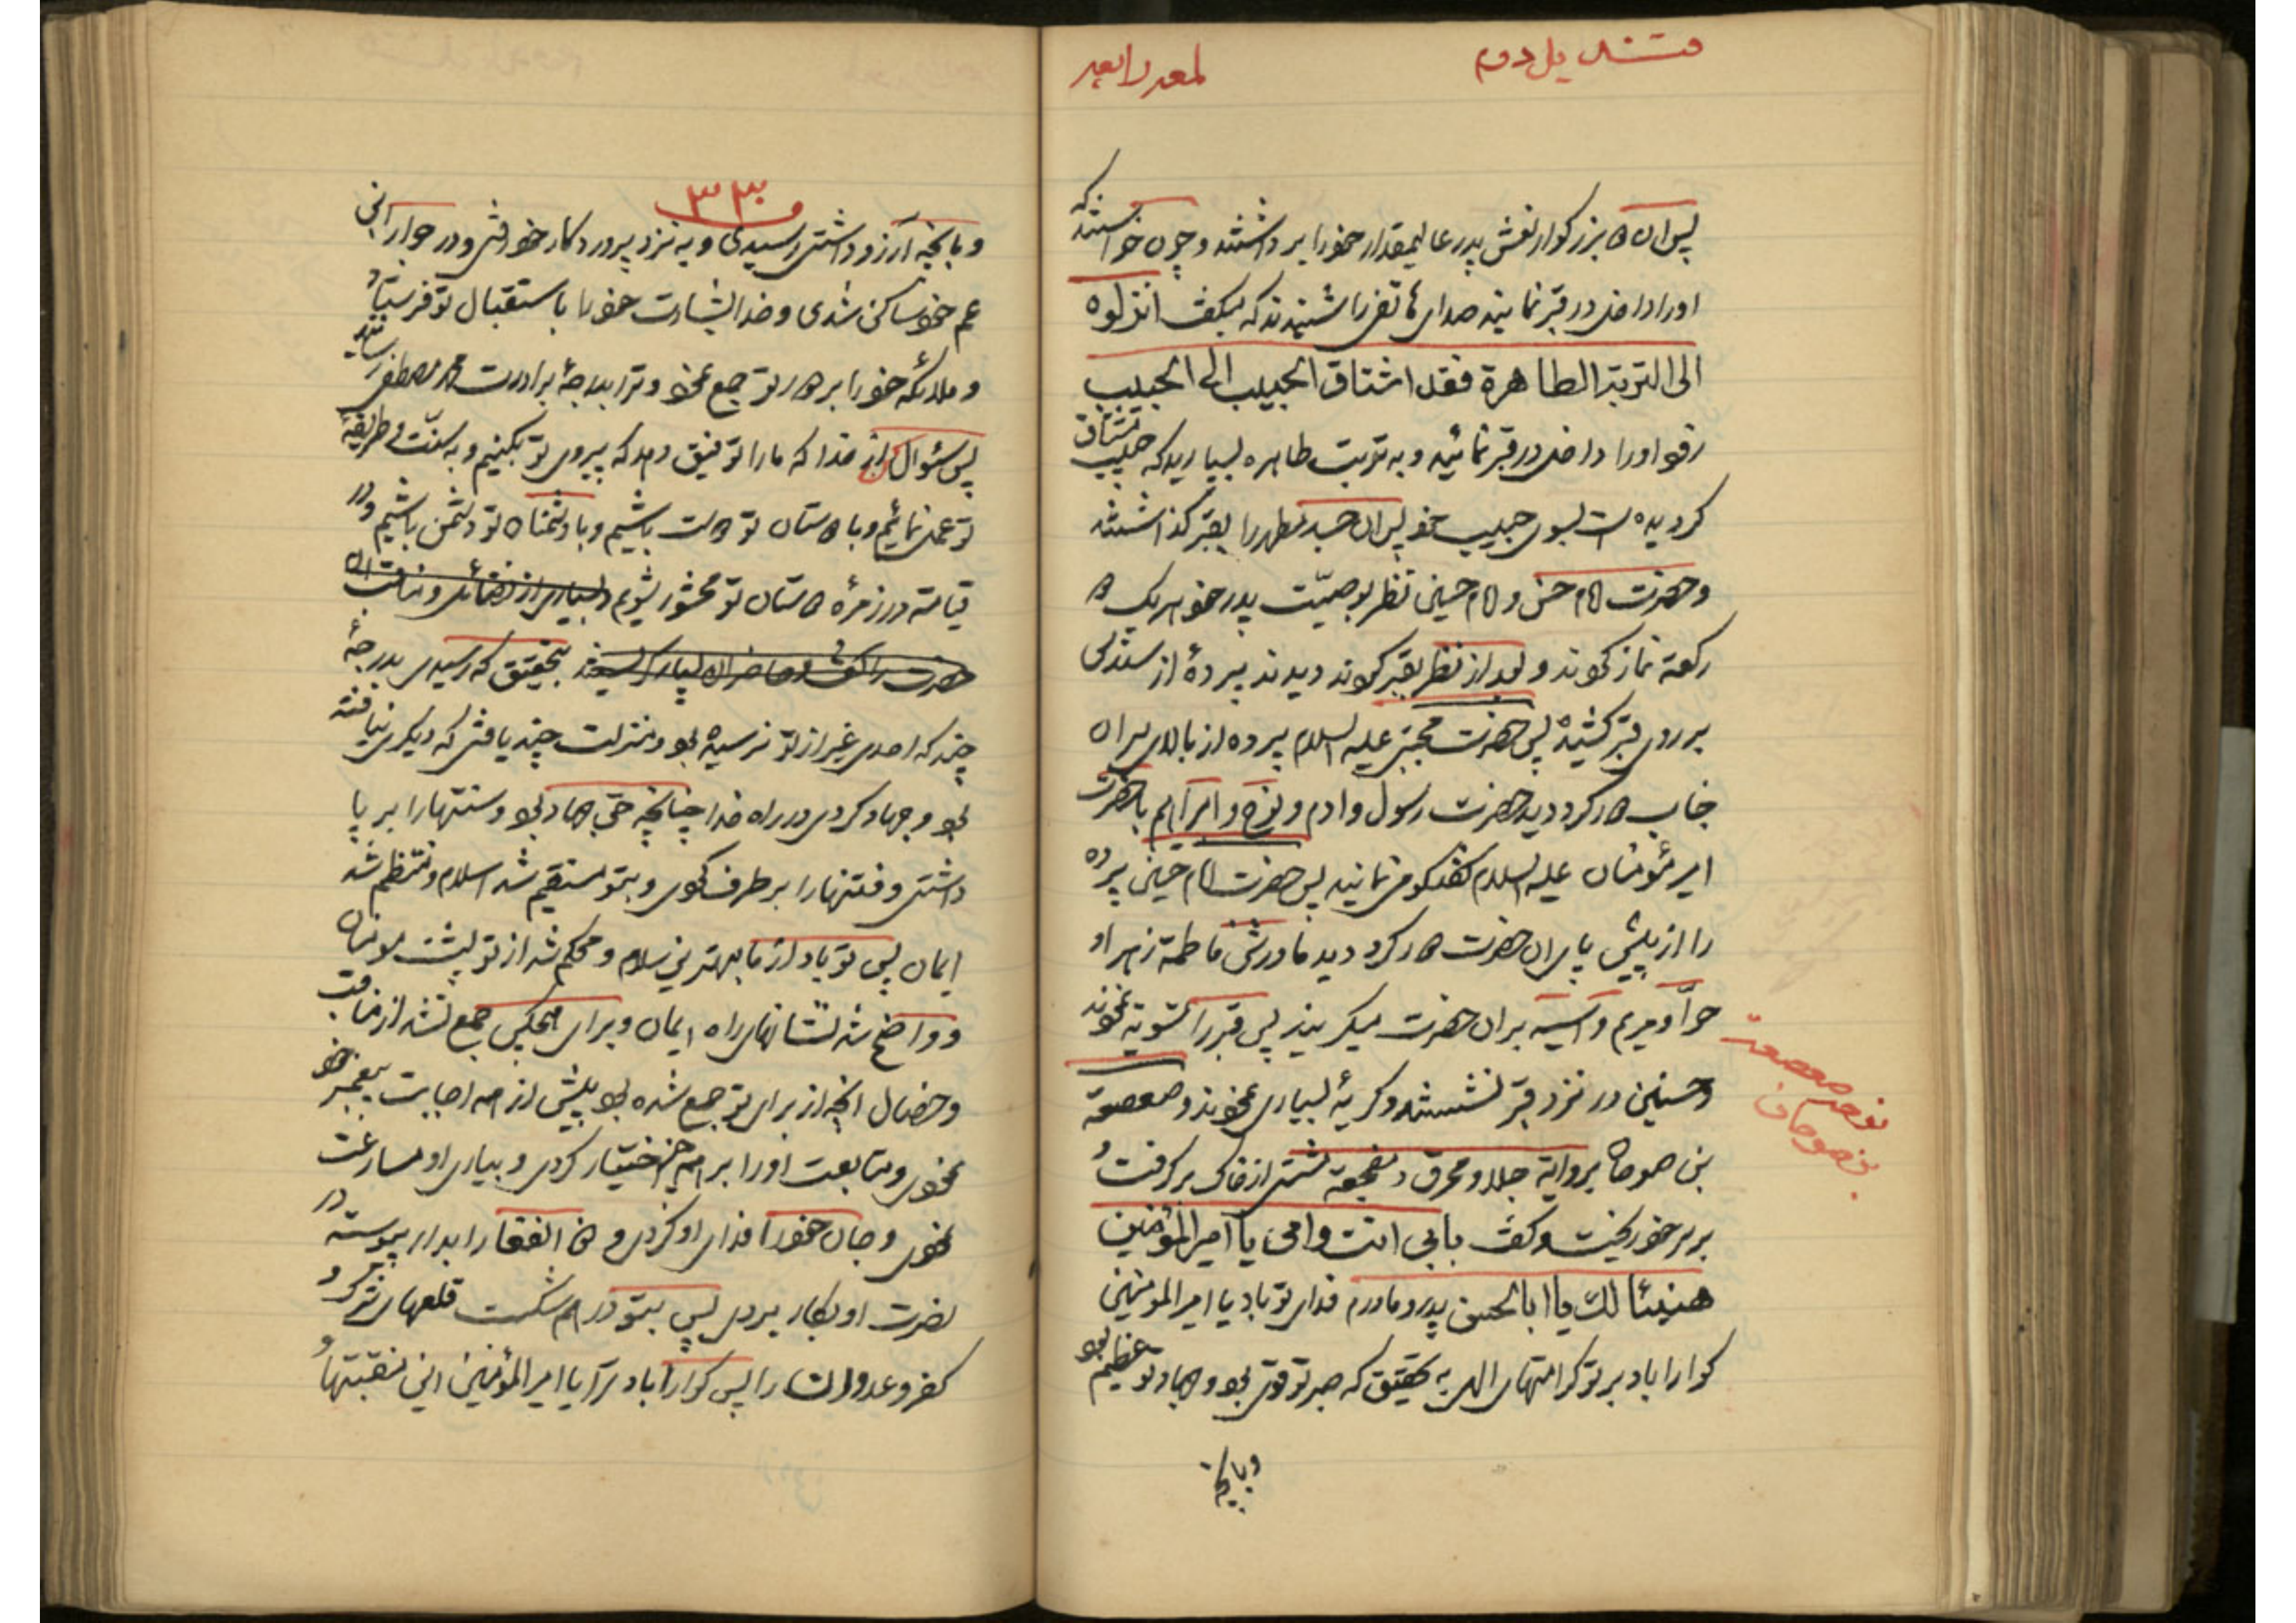 قندیل دوم
لمعه رابعه
پس ان دو بزرگوار نعش پدر عالیمقدار خود را برداشتند و چون خواستند که
اورا داخل در قبر نمایند صدای هاتفی را شنیدند که میگفت انزلوه
الی التربة الطاهرة فقد اشتاق الحبیب الی الحبیب
اورا داخل در قبر نمائید و به تربت طاهره بسپارید که حبیب مشتاق
گردیده است بسوی حبیب خود پس ان جسد مطهر را بقبر گذاشتند
و حضرت امام حسن و امام حسین نظر بوصیّت پدر خود هر یک دو
رکعة نماز کردند و بعد از ان نظر بقبر کردند دیدند پردهٔ از سندس
بر روی قبر کشیده پس حضرت مجتبی علیه السلام پرده از بالای سر ان
جناب دور کرد دید حضرت رسول و ادم و نوح و ابراهیم با حضرت
امیر مؤمنان علیه السلام گفتگو می نمایند پس حضرت امام حسین پرده
را از پیش پای ان حضرت دور کرد دید مادرش فاطمة زهرا و
حوّا و مریم و آسیه بر ان حضرت میگریند پس قبر را تسویة نمودند
و حسنین در نزد قبر نشستند و گریهٔ بسیاری نمودند و صعصعة
نوحه صعصعه
بن صوحان
بن صوحان بروایة جلا و محرق و مفجعة مشتی از خاک برگرفت و
بر سر خود ریخت و گفت بابی انت وامی یا امیر المؤمنین
هنیئا لك یا ابا الحسن پدر و مادرم فدای تو باد یا امیر المومنین
گوارا باد بر تو کرامتهای الهی به تحقیق که صبر تو قوی بود و جهاد تو عظیم بود
و بانچه
۳۳۰
و بانچه آرزو داشتی رسیدی و به نزد پروردگار خود رفتی و در جوار ابن
عم خود ساکن شدی و خدا بشارت خود را باستقبال تو فرستاد
و ملائکه خود را بر دور تو جمع نمود و ترا بدرجهٔ برادرت محمد مصطفی رسانید
پس سئوال از خدا که ما را توفیق دهد که پیروی تو بکنیم و به سنّت و طریقهٔ
تو عمل نمائیم و با دوستان تو دوست باشیم و با دشمنان تو دشمن باشیم و در
قیامة در زمرهٔ دوستان تو محشور شویم و بسیاری از فضائل و مناقب ان
حضرت را گفت و حاضران بسیار گریستند بتحقیق که رسیدی بدرجهٔ
چند که احدی غیر از تو نرسیده بود و منزلت چند یافتی که دیگری نیافته
بود و جهاد کردی در راه خدا چنانچه حق جهاد بود و سنتها را بر پا
داشتی و فتنها را بر طرف کردی و بتو مستقیم شد اسلام و منتظم شد
ایمان پس تو باد از ما بهترین سلام و محکم شد از تو پشت مومنان
و واضح شد نشانهای راه ایمان و برای هیچکس جمع نشد از مناقب
و خصال انچه از برای تو جمع شده بود پیش از همه اجابت پیغمبر خود
نمودی و متابعت اورا بر همه چیز اختیار کردی و بیاری او مسارعت
نمودی و جان خود را فدای او کردی و ذو الفقار را بدار پیوسته در
نصرت او بکار بردی پس بتو درهم شکست قلعهای شرک و
کفر و عدوان را پس گوارا باد ترا یا امیر المؤمنین این منقبتها و